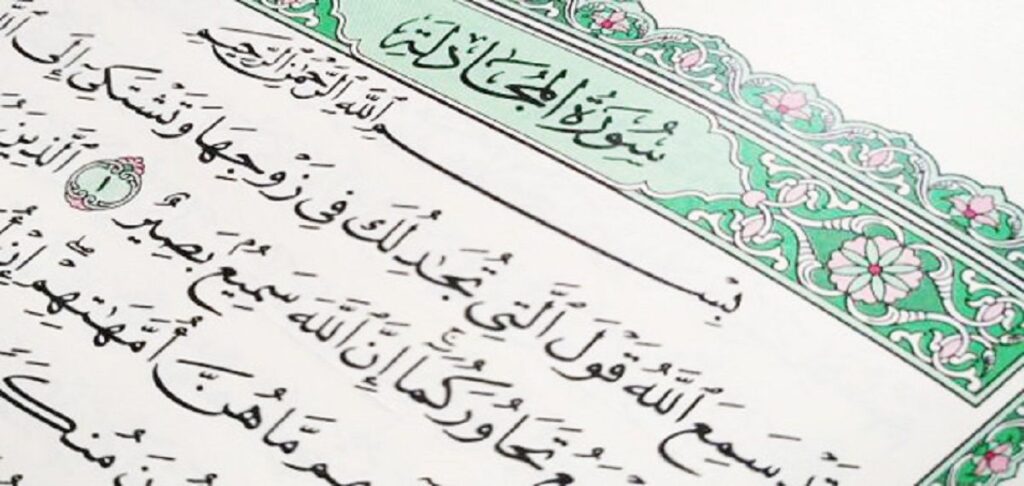 سُورَةُ المُجَادلَةِ
بِسْمِ ٱللَّهِ ٱلرَّحْمَٰنِ ٱلرَّحِيمِ
قَدْ سَمِعَ ٱللَّهُ قَوْلَ ٱلَّتِي تُجَٰدِلُكَ فِي زَوْجِهَا وَتَشْتَكِيٓ إِلَى
تَحَاوُرَكُمَآ إِنَّ ٱللَّهَ سَمِيعُۢ بَصِيرٌ ١ ٱلَّذِينَ
مَّا هُنَّ أُمَّهَٰتِهِمْۖ إِنْ